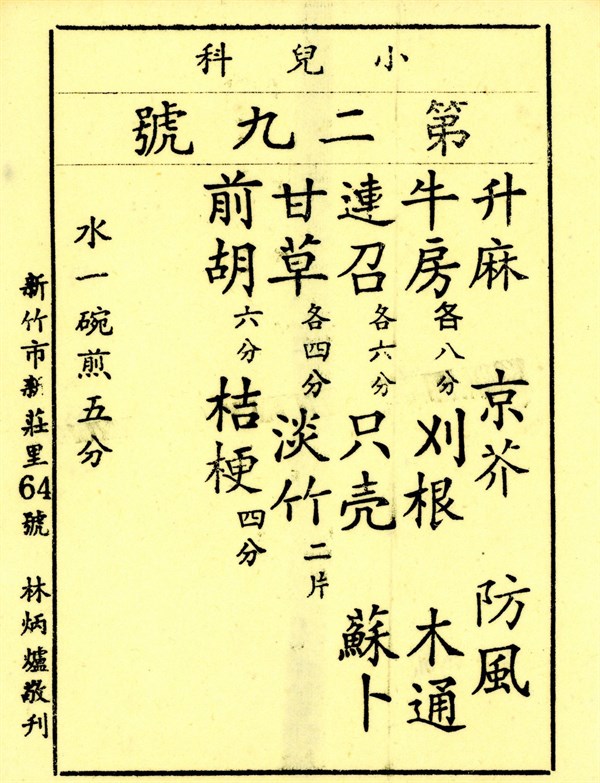 小兒科
第二九號
升麻 京芥 防風
牛房 各八分 刈根 木通
連召 各六分 只壳 蘇卜
甘草 各四分 淡竹 二片
前胡 六分 桔梗 四分
水一碗煎五分
新竹市新莊里64號 林炳爐敬刊